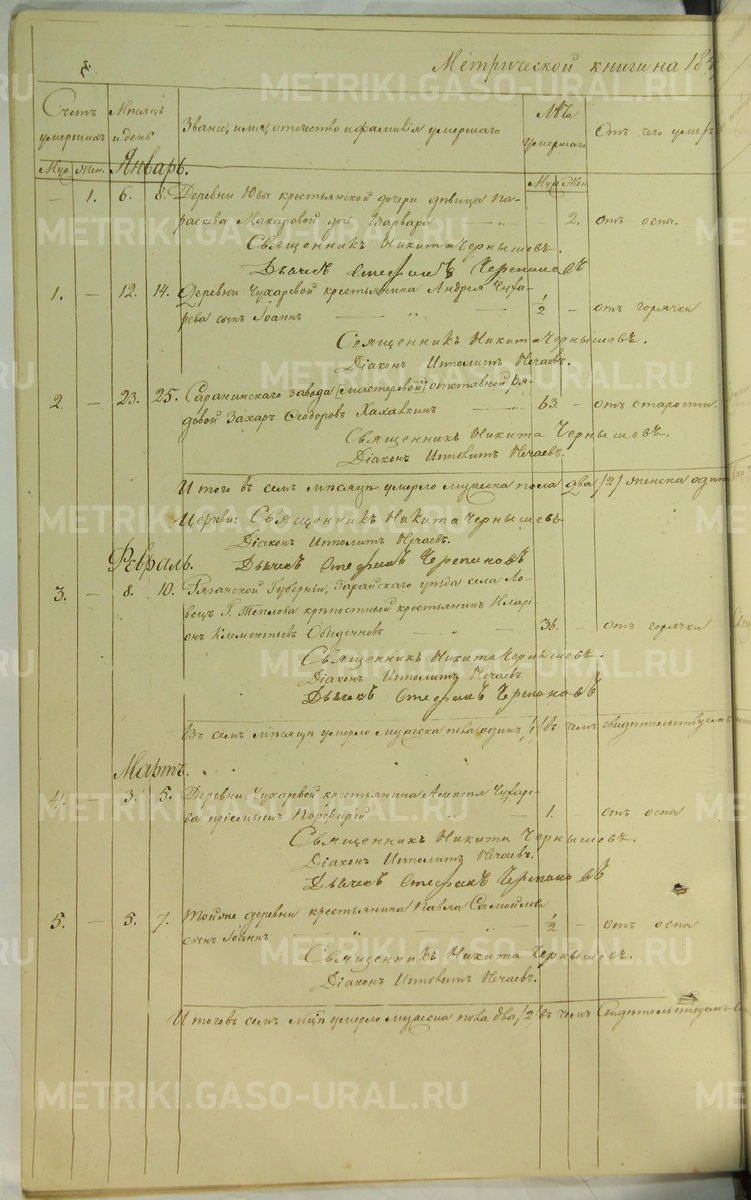 Метрической книги на 184
Счетъ умершихъ Мѣсяцъ и день Званіе, имя, отчество и фамилія умершаго Лѣта умершаго Отъ чего умеръ
Муж. Жен. Январь. Муж. Жен.
— 1. 6. 8. Деревни Ювы крестьянской дочери дѣвицы Па-
раскевы Макаровой дочь Варвара — 2. отъ оспы.
Священникъ Никита Чернышевъ.
Дьячекъ Стефанъ Черепановъ
1. — 12. 14. Деревни Чухаревой крестьянина Андрея Чуха-
рева сынъ Іоаннъ 1/2 — отъ горячки
Священникъ Никита Чернышевъ.
Діаконъ Ипполитъ Нечаевъ.
2. — 23. 25. Саранинскаго завода [мастеровой] отставной ря-
довой Захаръ Ѳеодоровъ 63. — отъ старости.
Священникъ Никита Чернышевъ.
Діаконъ Ипполитъ Нечаевъ.
Итого въ семъ мѣсяцѣ умерло мужеска пола два /2/ женска одна
Церкви: Священникъ Никита Чернышевъ
Діаконъ Ипполитъ Нечаевъ.
Февраль. Дьячекъ Стефанъ Черепановъ
3. — 8. 10. Рязанской Губерніи, Зарайскаго уѣзда села Ло-
вецъ Г. Теплова крѣпостный крестьянинъ Иларі-
онъ Климентьевъ 36. — отъ горячки
Священникъ Никита Чернышевъ.
Діаконъ Ипполитъ Нечаевъ
Дьячекъ Стефанъ Черепановъ
Въ семъ мѣсяцѣ умерло мужеска пола одинъ /1/ въ чемъ свидѣтельствуемъ
Мартъ.
4. — 3. 5. Деревни Чухаревой крестьянина Алексѣя Чухаре-
ва пріемышъ Порфирій — 1. отъ оспы
Священникъ Никита Чернышевъ.
Діаконъ Ипполитъ Нечаевъ.
Дьячекъ Стефанъ Черепановъ
5. — 5. 7. Тойже деревни крестьянина Павла Самойлова
сынъ Іоаннъ 1/2 — отъ оспы
Священникъ Никита Чернышевъ.
Діаконъ Ипполитъ Нечаевъ.
Итого въ семъ мѣсяцѣ умерло мужеска пола два /2/ въ чемъ свидѣтельствуемъ
METRIKI.GASO-URAL.RU